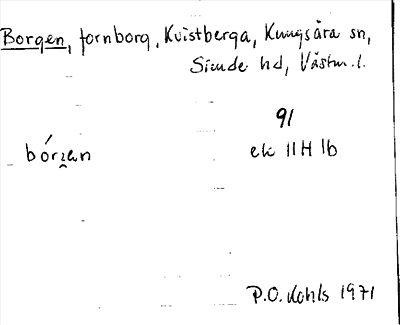 Borgen, fornborg, Kvistberga, Kungsåra sn,
Siende hd, Västm. l.
91
bórꞬen
ek 11H 1b
P.O. Kohls 1971